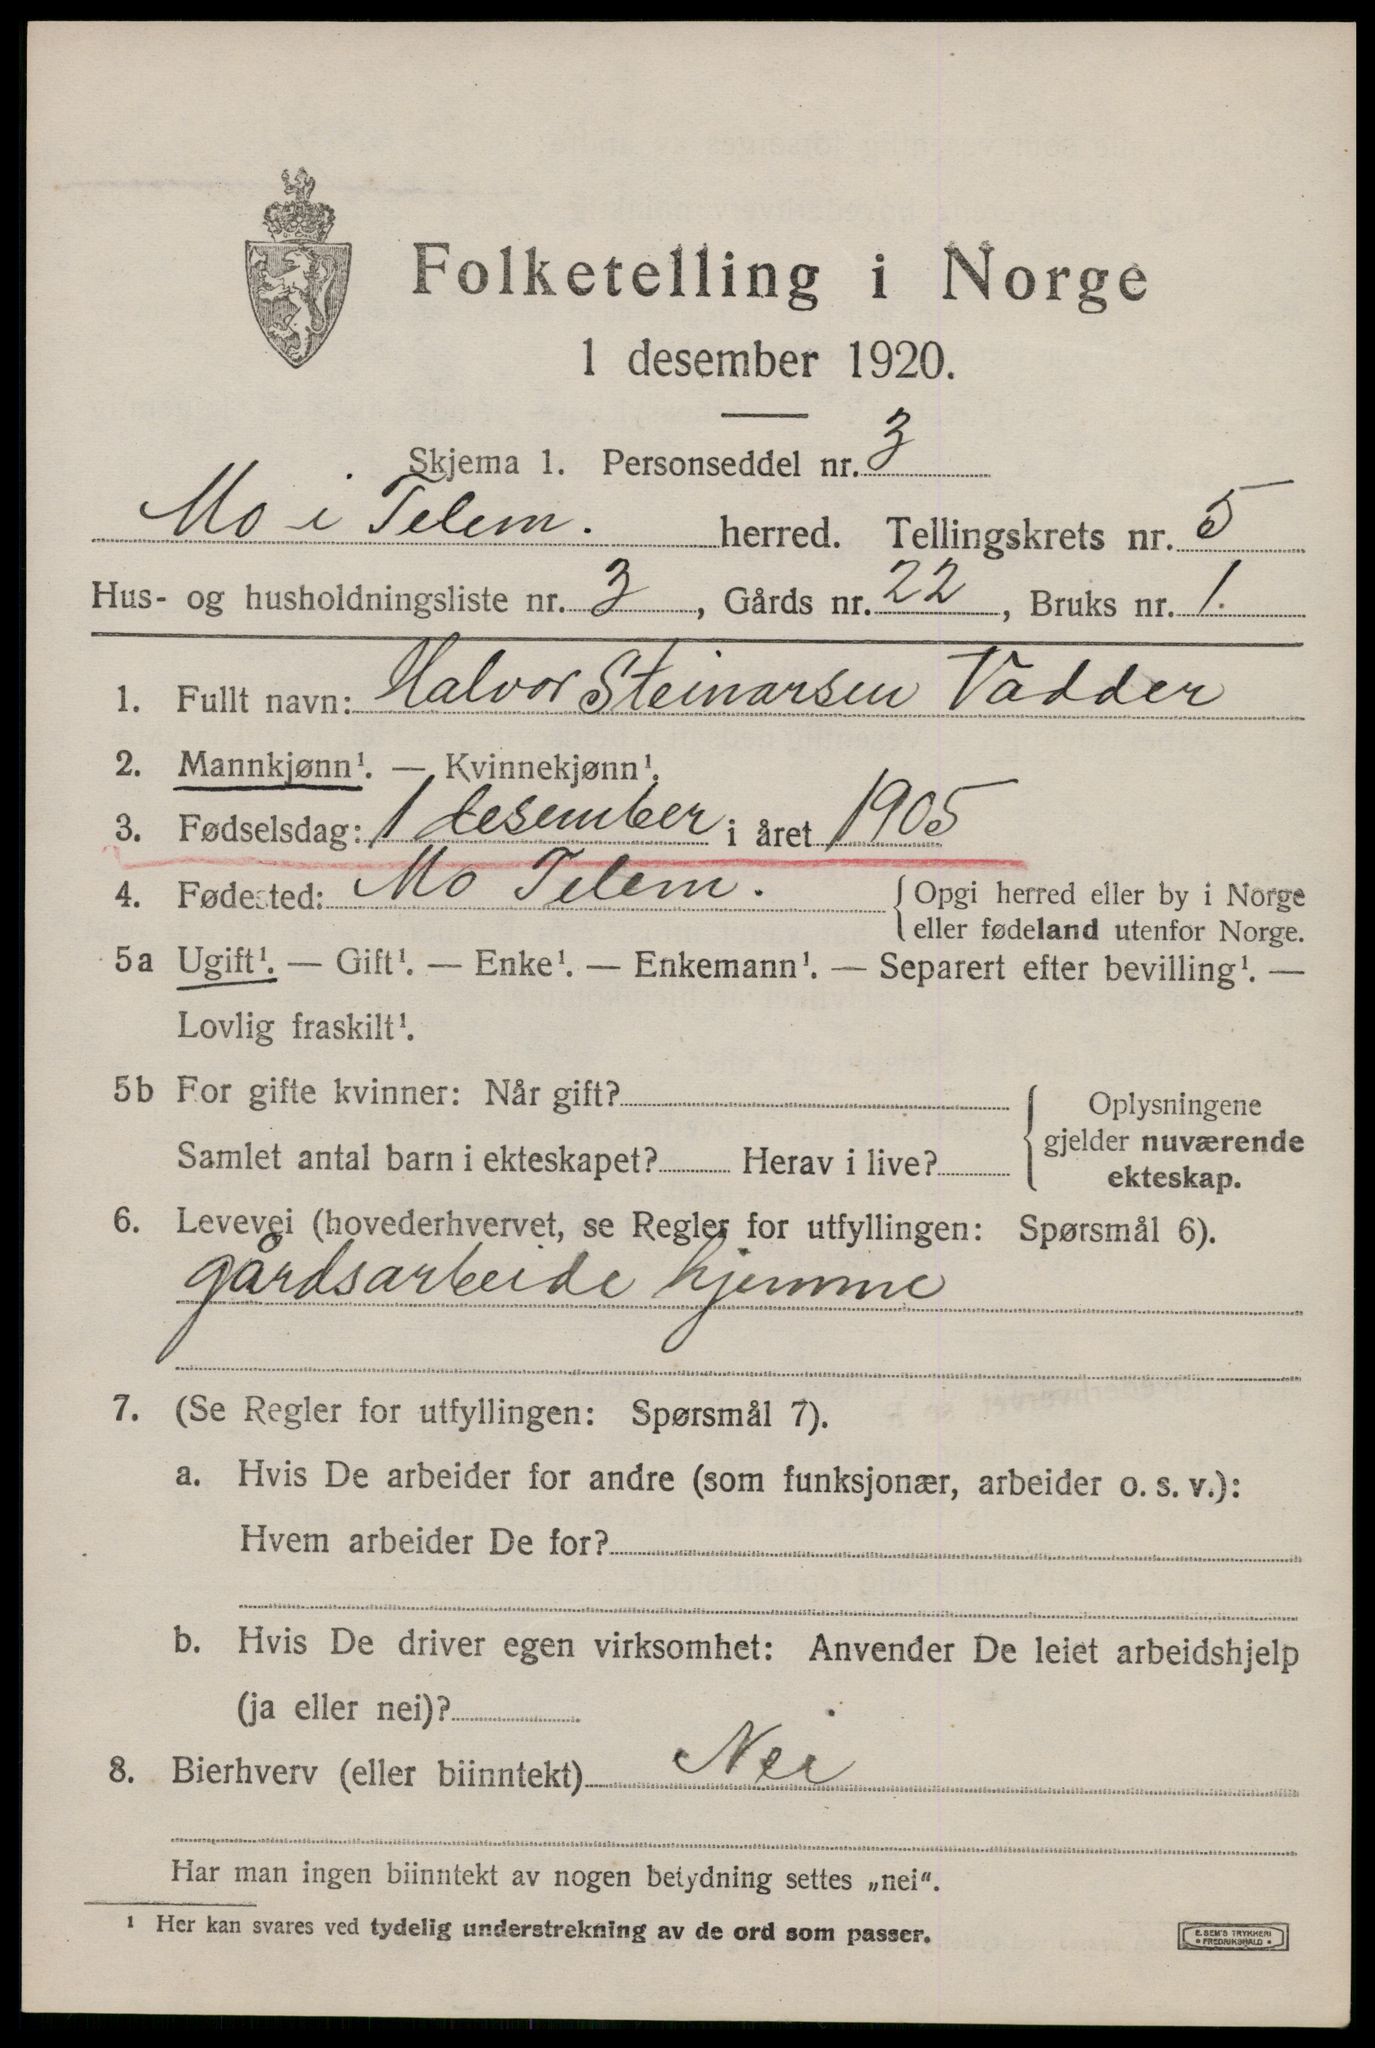 Folketelling i Norge
1 desember 1920.
Skjema 1. Personseddel nr. 3
Mo i Telem. herred. Tellingskrets nr. 5
Hus- og husholdningsliste nr. 3, Gårds nr. 22, Bruks nr. 1.
1. Fullt navn: Halvor Steinarsen Vadder
2. Mannkjønn¹. — Kvinnekjønn¹.
3. Fødselsdag: 1 desember i året 1905
4. Fødested: Mo Telem. { Opgi herred eller by i Norge
eller fødeland utenfor Norge.
5a Ugift¹. — Gift¹. — Enke¹. — Enkemann¹. — Separert efter bevilling¹. —
Lovlig fraskilt¹.
5b For gifte kvinner: Når gift? { Oplysningene
gjelder nuværende
Samlet antal barn i ekteskapet? Herav i live?
ekteskap.
6. Levevei (hovederhvervet, se Regler for utfyllingen: Spørsmål 6).
gårdsarbeide hjemme
7. (Se Regler for utfyllingen: Spørsmål 7).
a. Hvis De arbeider for andre (som funksjonær, arbeider o. s. v.):
Hvem arbeider De for?
b. Hvis De driver egen virksomhet: Anvender De leiet arbeidshjelp
(ja eller nei)?
8. Bierhverv (eller biinntekt) Nei
Har man ingen biinntekt av nogen betydning settes „nei“.
¹ Her kan svares ved tydelig understrekning av de ord som passer.
E. SEM'S TRYKKERI
• FREDRIKSHALD •